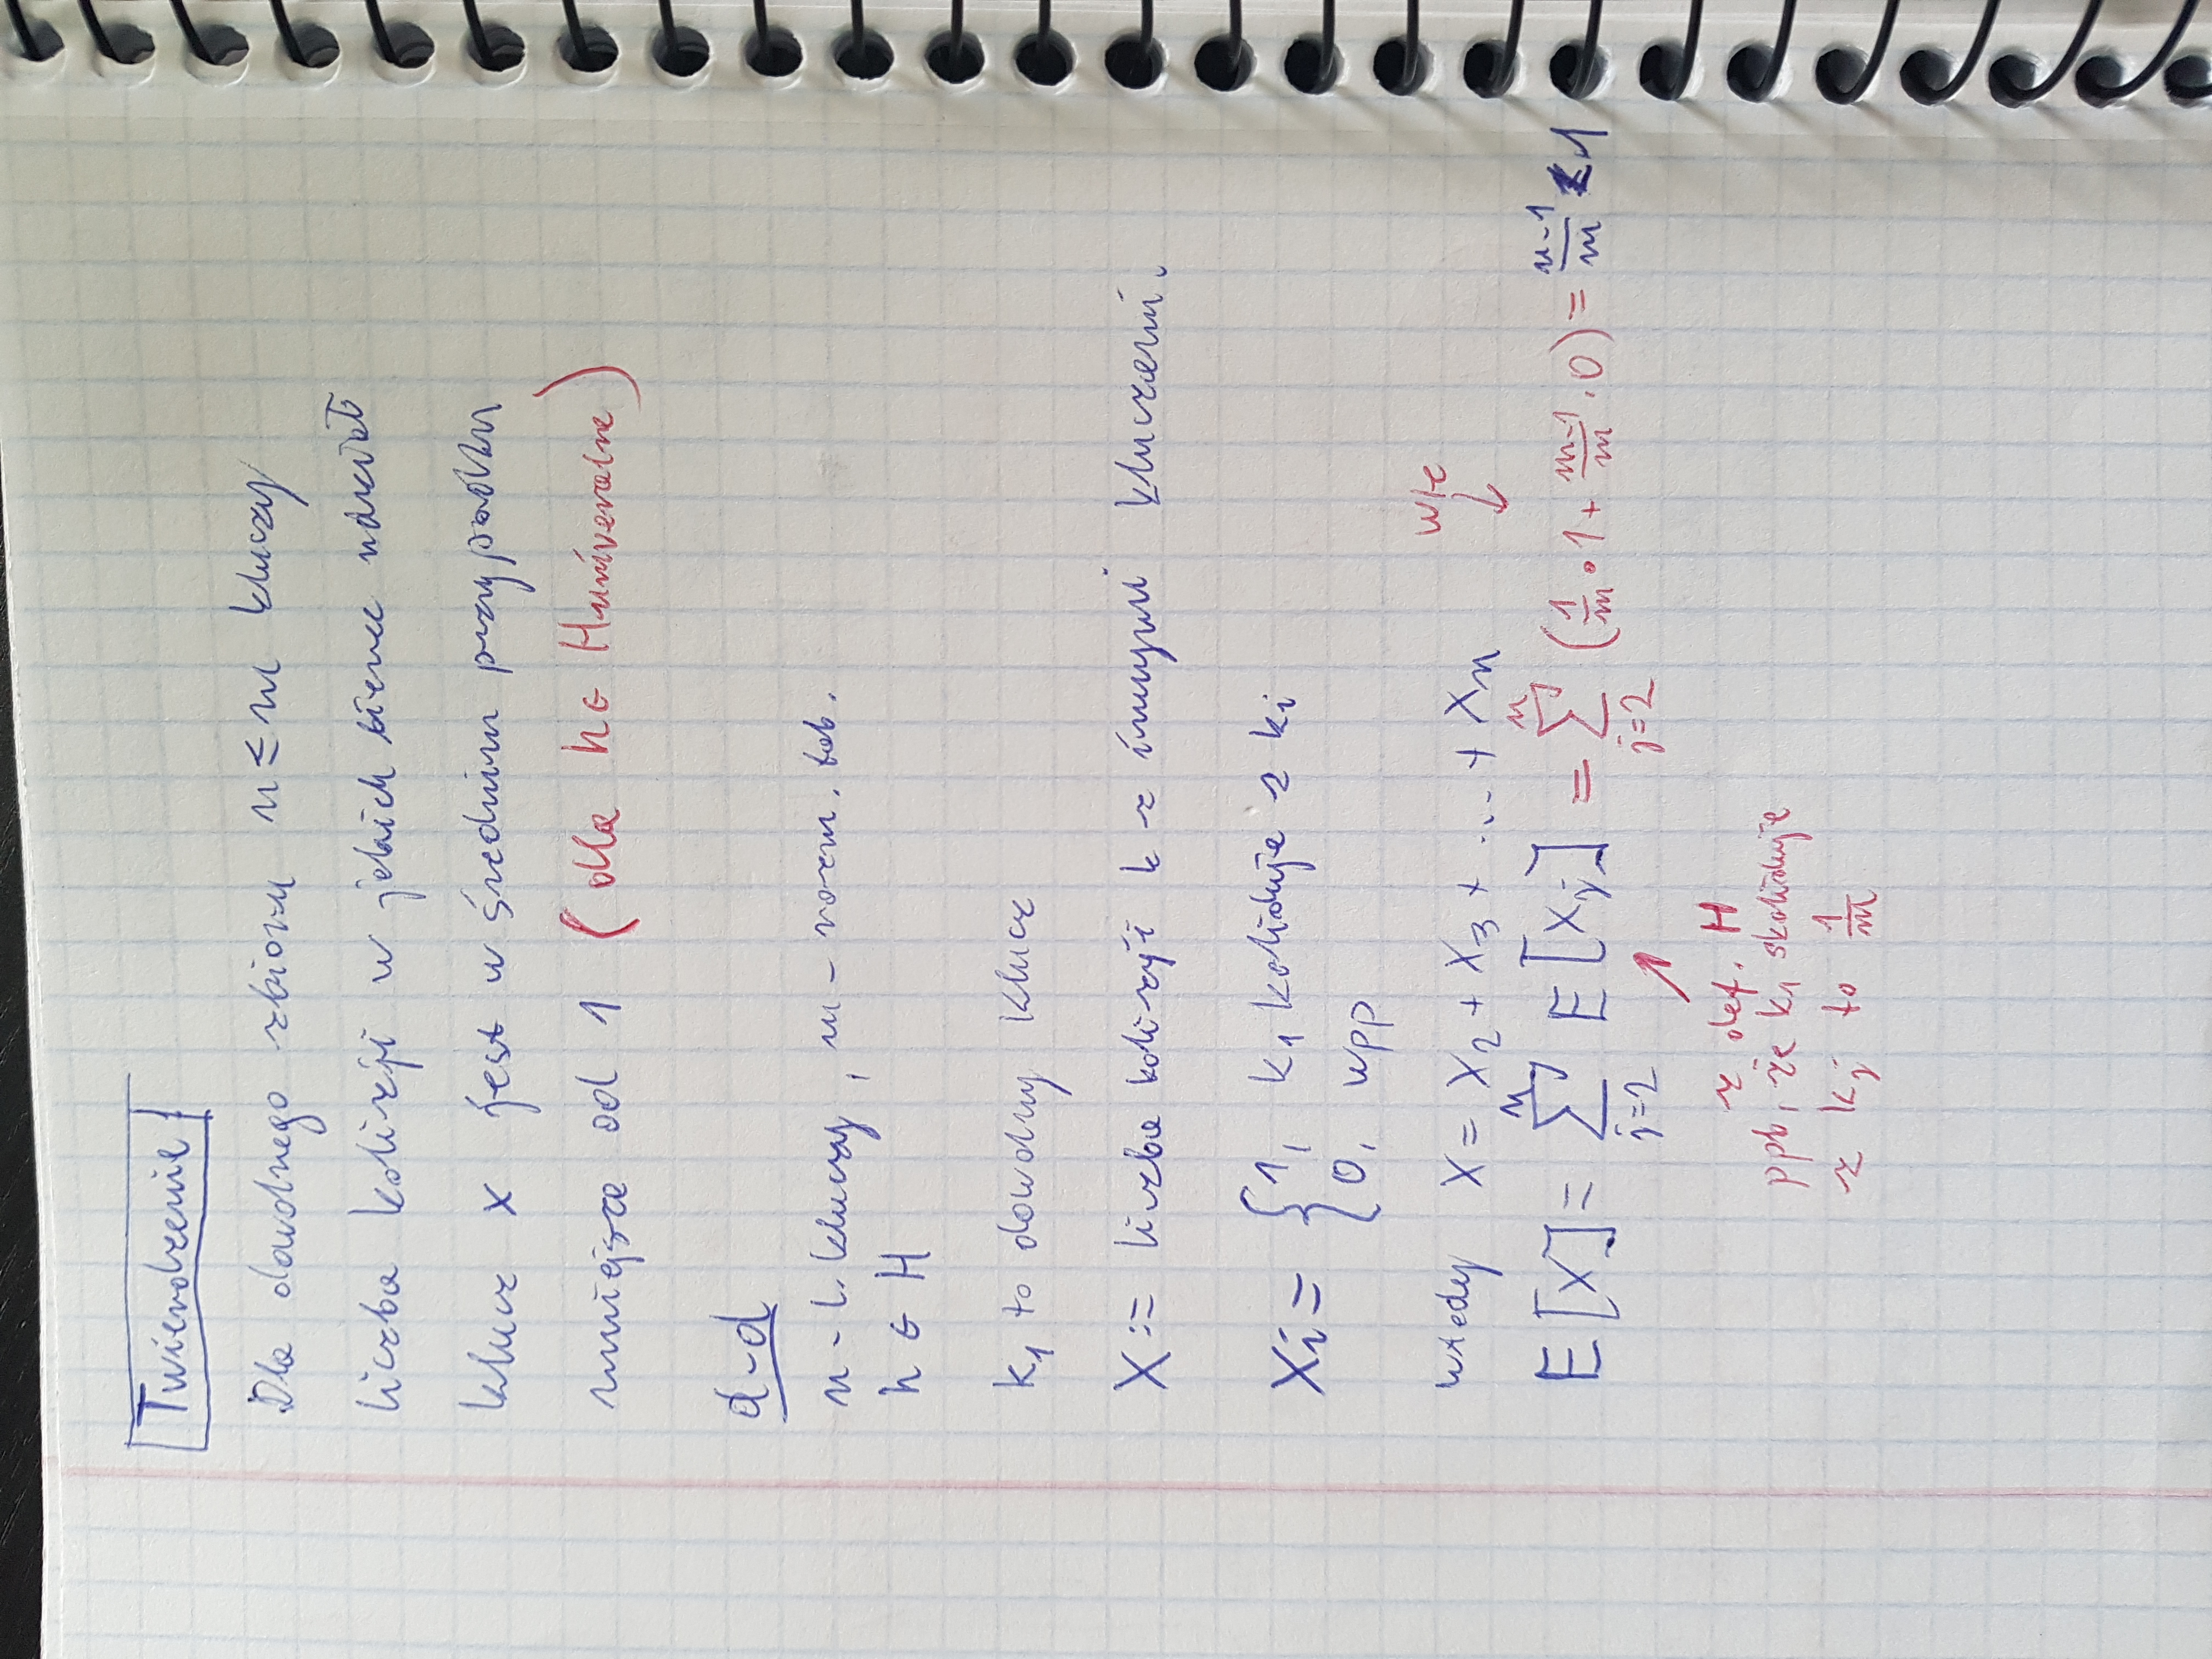 Twierdzenie
Dla dowolnego zbioru n ≤ m kluczy
liczba kolizji w jakich bierze udział
klucz x jest w średnim przypadku
mniejsza od 1 (dla h ∈ H uniwersalne)
d-d
n - l. kluczy, m - rozm. tab.
h ∈ H
k₁ to dowolny klucz
X := liczba kolizji k z innymi kluczami.
Xi = { 1, k₁ koliduje z ki
{ 0, wpp
wtedy X = X₂ + X₃ + ... + Xn
w/c ↓
E[X] = Σ_{j=2}^{n} E[Xj] = Σ_{j=2}^{n} (1/m · 1 + m-1/m · 0) = n-1/m < 1
z def. H
ppb, że k₁ skoliduje
z kj to 1/m